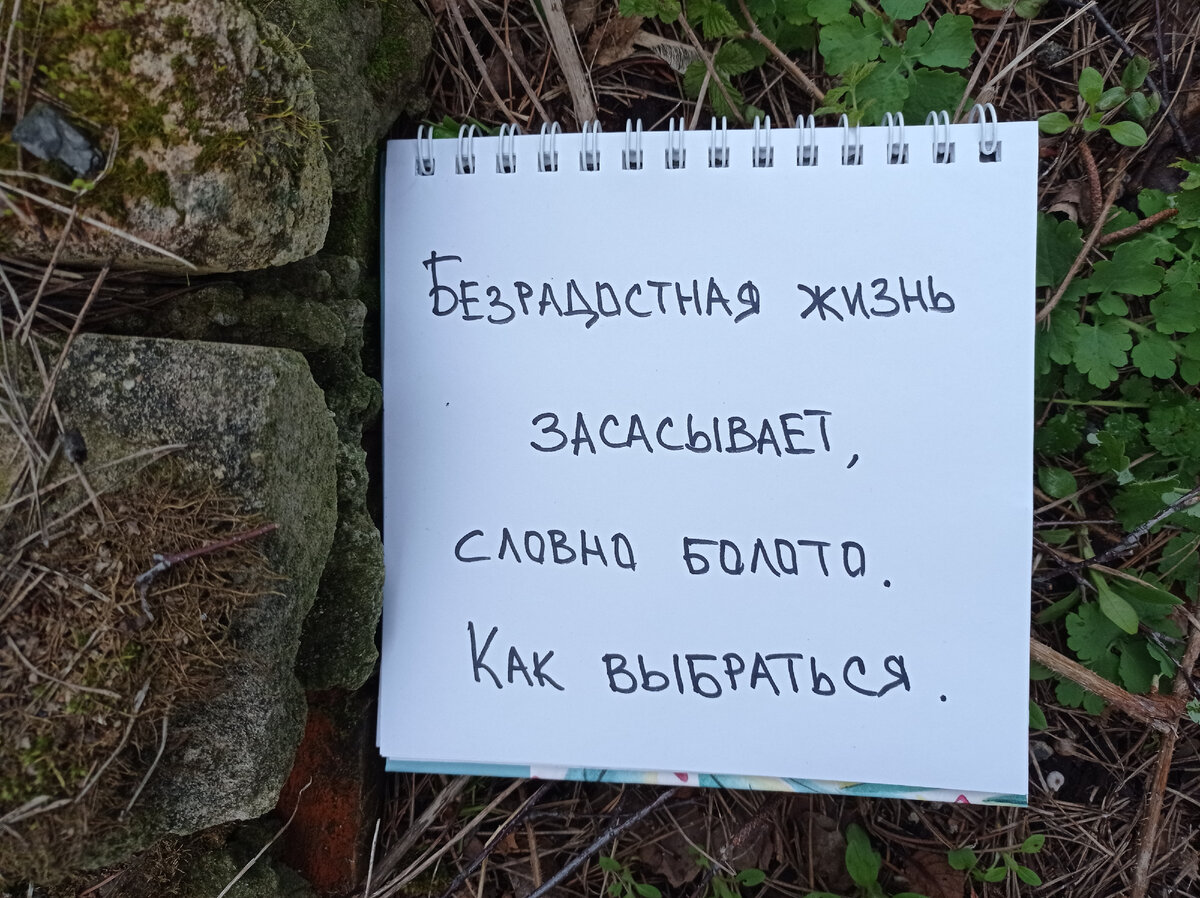 Безрадостная жизнь
засасывает,
словно болото.
Как выбраться.